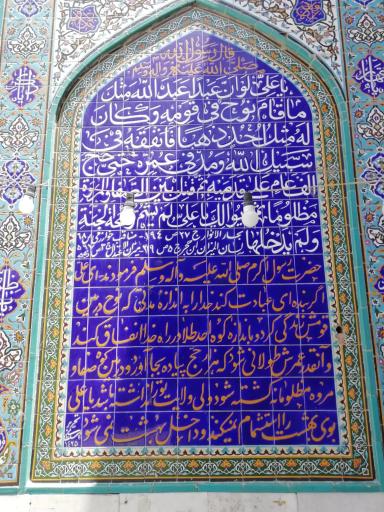 قال رسول الله
صلی الله علیه و آله وسلم
یا علی لو ان عبدا عبد الله مثل
ما قام نوح فی قومه و کان
له مثل احد ذهبا فانفقه فی
سبیل الله و مد فی عمره حتی حج
الف عام علی قدمیه ثم قتل بین الصفا و المروة
مظلوما ثم لم یوالک یا علی لم یشم رائحة الجنة
ولم یدخلها
حضرت رسول اکرم صلی الله علیه و آله وسلم فرمودند ای علی
اگر بنده‌ای عبادت کند خدا را به اندازه مدتی که نوح در بین
قومش زندگی کرد و به اندازه کوه احد طلا در راه خدا انفاق کند
و آنقدر عمرش طولانی شود که هزار حج پیاده بجا آورد و در بین صفا و
مروه مظلومانه کشته شود ولی ولایت تو را نداشته باشد یا علی
بوی بهشت را استشمام نمیکند و داخل بهشت نمی شود